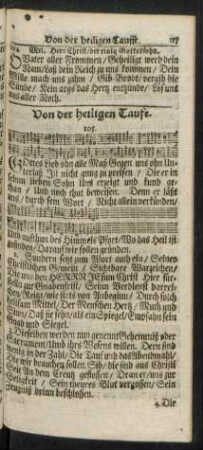 Von der heiligen Tauffe. 117
Mel. Herr Christ/ der einig Gottessohn.
O Vater aller Frommen/ Geheiligt werd dein
Nam/ Laß dein Reich zu uns kommen/ Dein
Wille mach uns zahm/ Gib Brodt/ vergib die
Sünde/ Kein args das Hertz entzünde/ Löß uns
aus aller Noth.
Von der heiligen Taufe.
105.
GOttes Lieb ohn alle Maß Gegen uns ohn Un-
terlaß Ist nicht gnug zu preisen/ Die er in
seinem lieben Sohn Uns erzeigt und kund ge-
than/ Und noch thut beweisen. Denn er läßt
uns/ durch sein Wort/ Nicht allein verkünden/
Und aufthun des Himmels Pfort/ Wo das Heil ist
zufinden/ Darauf wir sollen gründen.
2. Sondern setzt zum Wort auch ein/ Seiner
Christlichen Gemein/ Sichtbare Warzeichen/
Die uns den HERRN JEsum Christ Hier für-
Mittel/ Der Menschen Hertz/ Muth und
Sinn/ Daß sie sehn/ als ein Spiegel/
und Siegel.
3. Dieselben werden nun genennt Geheimniß oder
Sacrament/ Und ihrs Wesens willen. Dern sind
in der Zahl/ Die Tauf und das Abendmahl/
die wir brauchen sollen
An dem Creutz geflossen/
Seligkeit/ Sein theures Blut vergossen/ Sein
Zeugniß drinn beschlossen.
4. Die